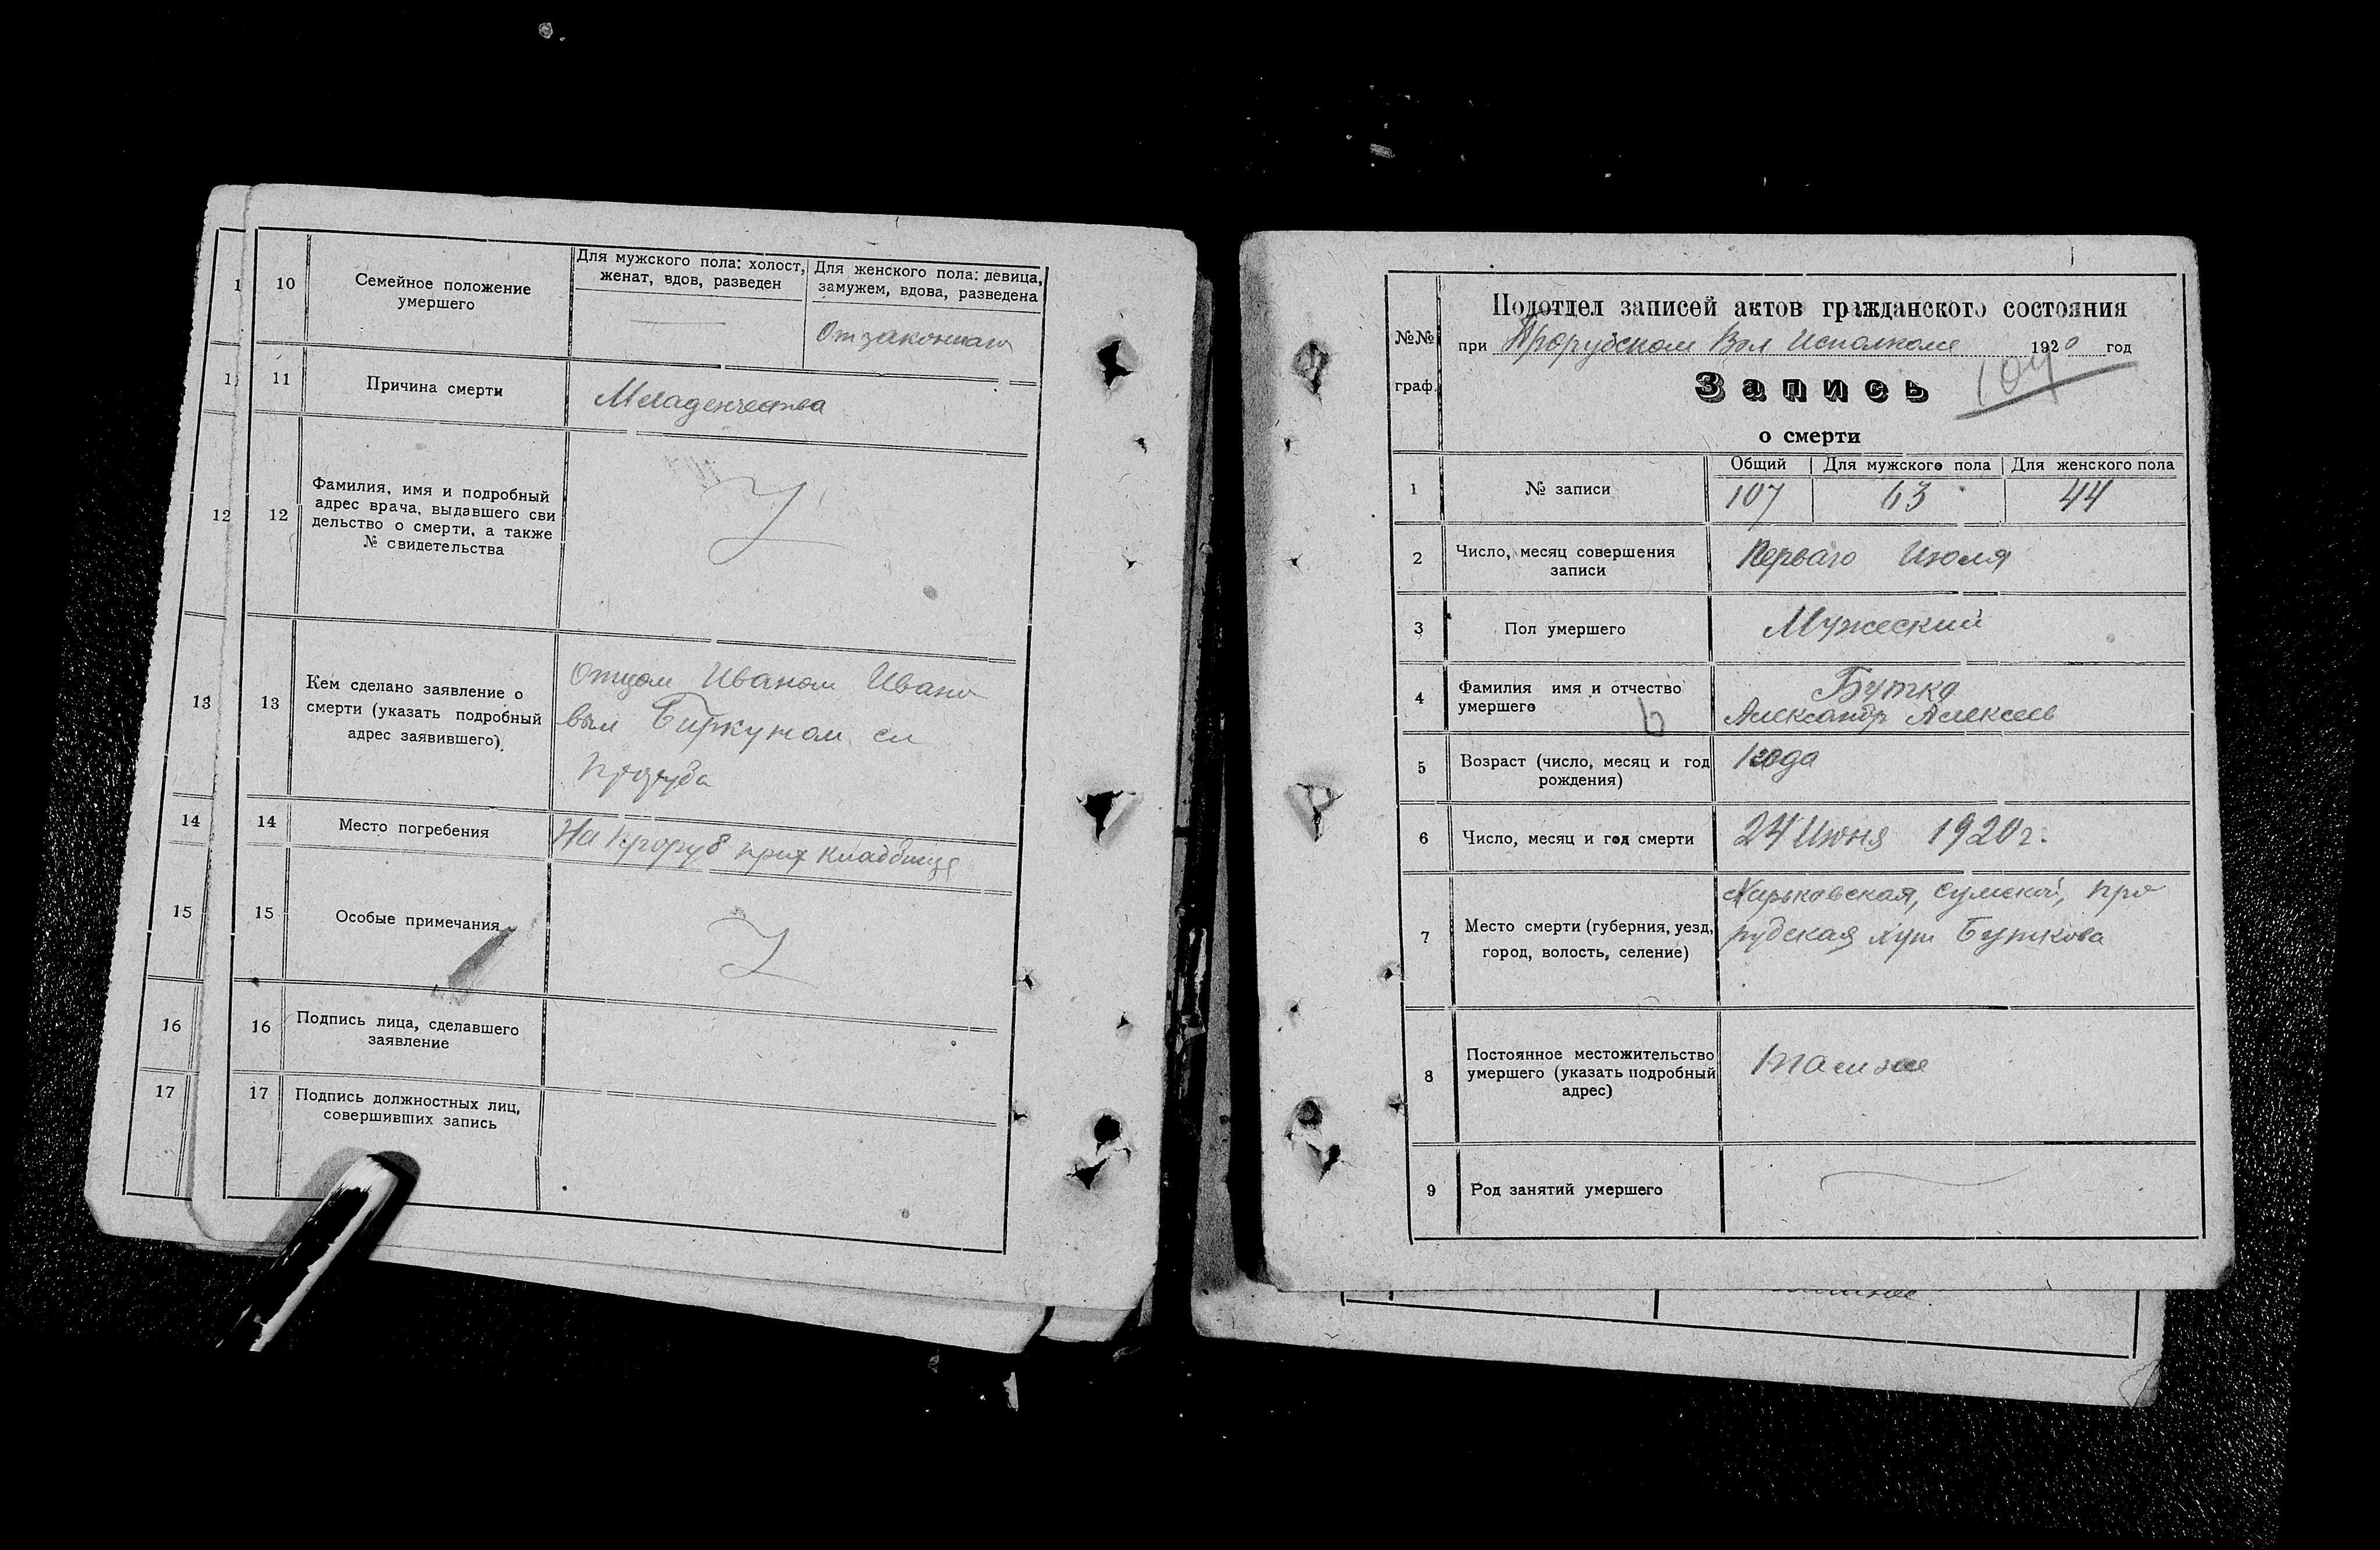 1
10
Семейное положение
умершего
Для мужского пола: холост,
женат, вдов, разведен
Для женского пола: девица,
замужем, вдова, разведена
От законнаго
1
11
Причина смерти
Младенчества
12
12
Фамилия, имя и подробный
адрес врача, выдавшего сви
дельство о смерти, а также
№ свидетельства
13
13
Кем сделано заявление о
смерти (указать подробный
адрес заявившего).
Отцом Иваном Ивано
вым Биркуном сл
Проруба
14
14
Место погребения
На Проруб прих кладбище
15
15
Особые примечания
16
16
Подпись лица, сделавшего
заявление
17
17
Подпись должностных лиц,
совершивших запись
№№
граф.
Подотдел записей актов гражданского состояния
при Прорубском Вол Исполкоме 1920 год
104
Запись
о смерти
1
№ записи
Общий
Для мужского пола
Для женского пола
107
63
44
2
Число, месяц совершения
записи
Перваго Июля
3
Пол умершего
Мужеский
4
Фамилия имя и отчество
умершего
Бутко
Александр Алексеев
5
Возраст (число, месяц и год
рождения)
1 года
6
Число, месяц и год смерти
24 Июня 1920 г.
7
Место смерти (губерния, уезд,
город, волость, селение)
Харьковская, Сумской, Про
рубская хут Буткова
8
Постоянное местожительство
умершего (указать подробный
адрес)
Там же
9
Род занятий умершего